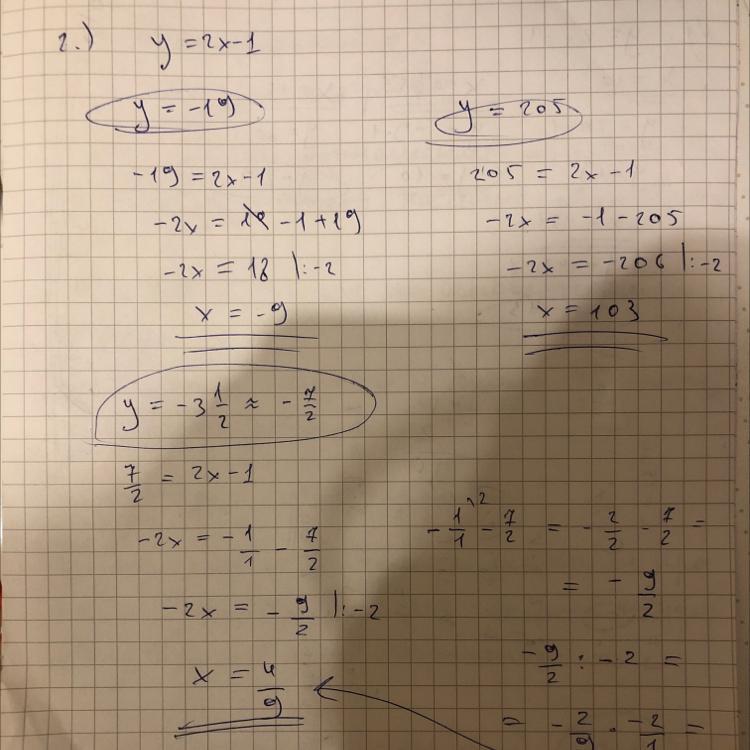 2.) y = 2x-1
y = -19
-19 = 2x-1
-2x = -1+19
-2x = 18 |:-2
x = -9
y = 205
205 = 2x-1
-2x = -1-205
-2x = -206 |:-2
x = 103
y = -3 1/2 ≈ -7/2
7/2 = 2x-1
-2x = -1/1 - 7/2
-2x = -9/2 |:-2
x = 4/9
-1/1 \2 - 7/2 = -2/2 - 7/2 =
= -9/2
-9/2 : -2 =
= -2/9 · -2/1 =